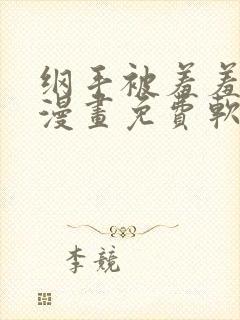 纲手被羞羞
漫畫免費軟
李競